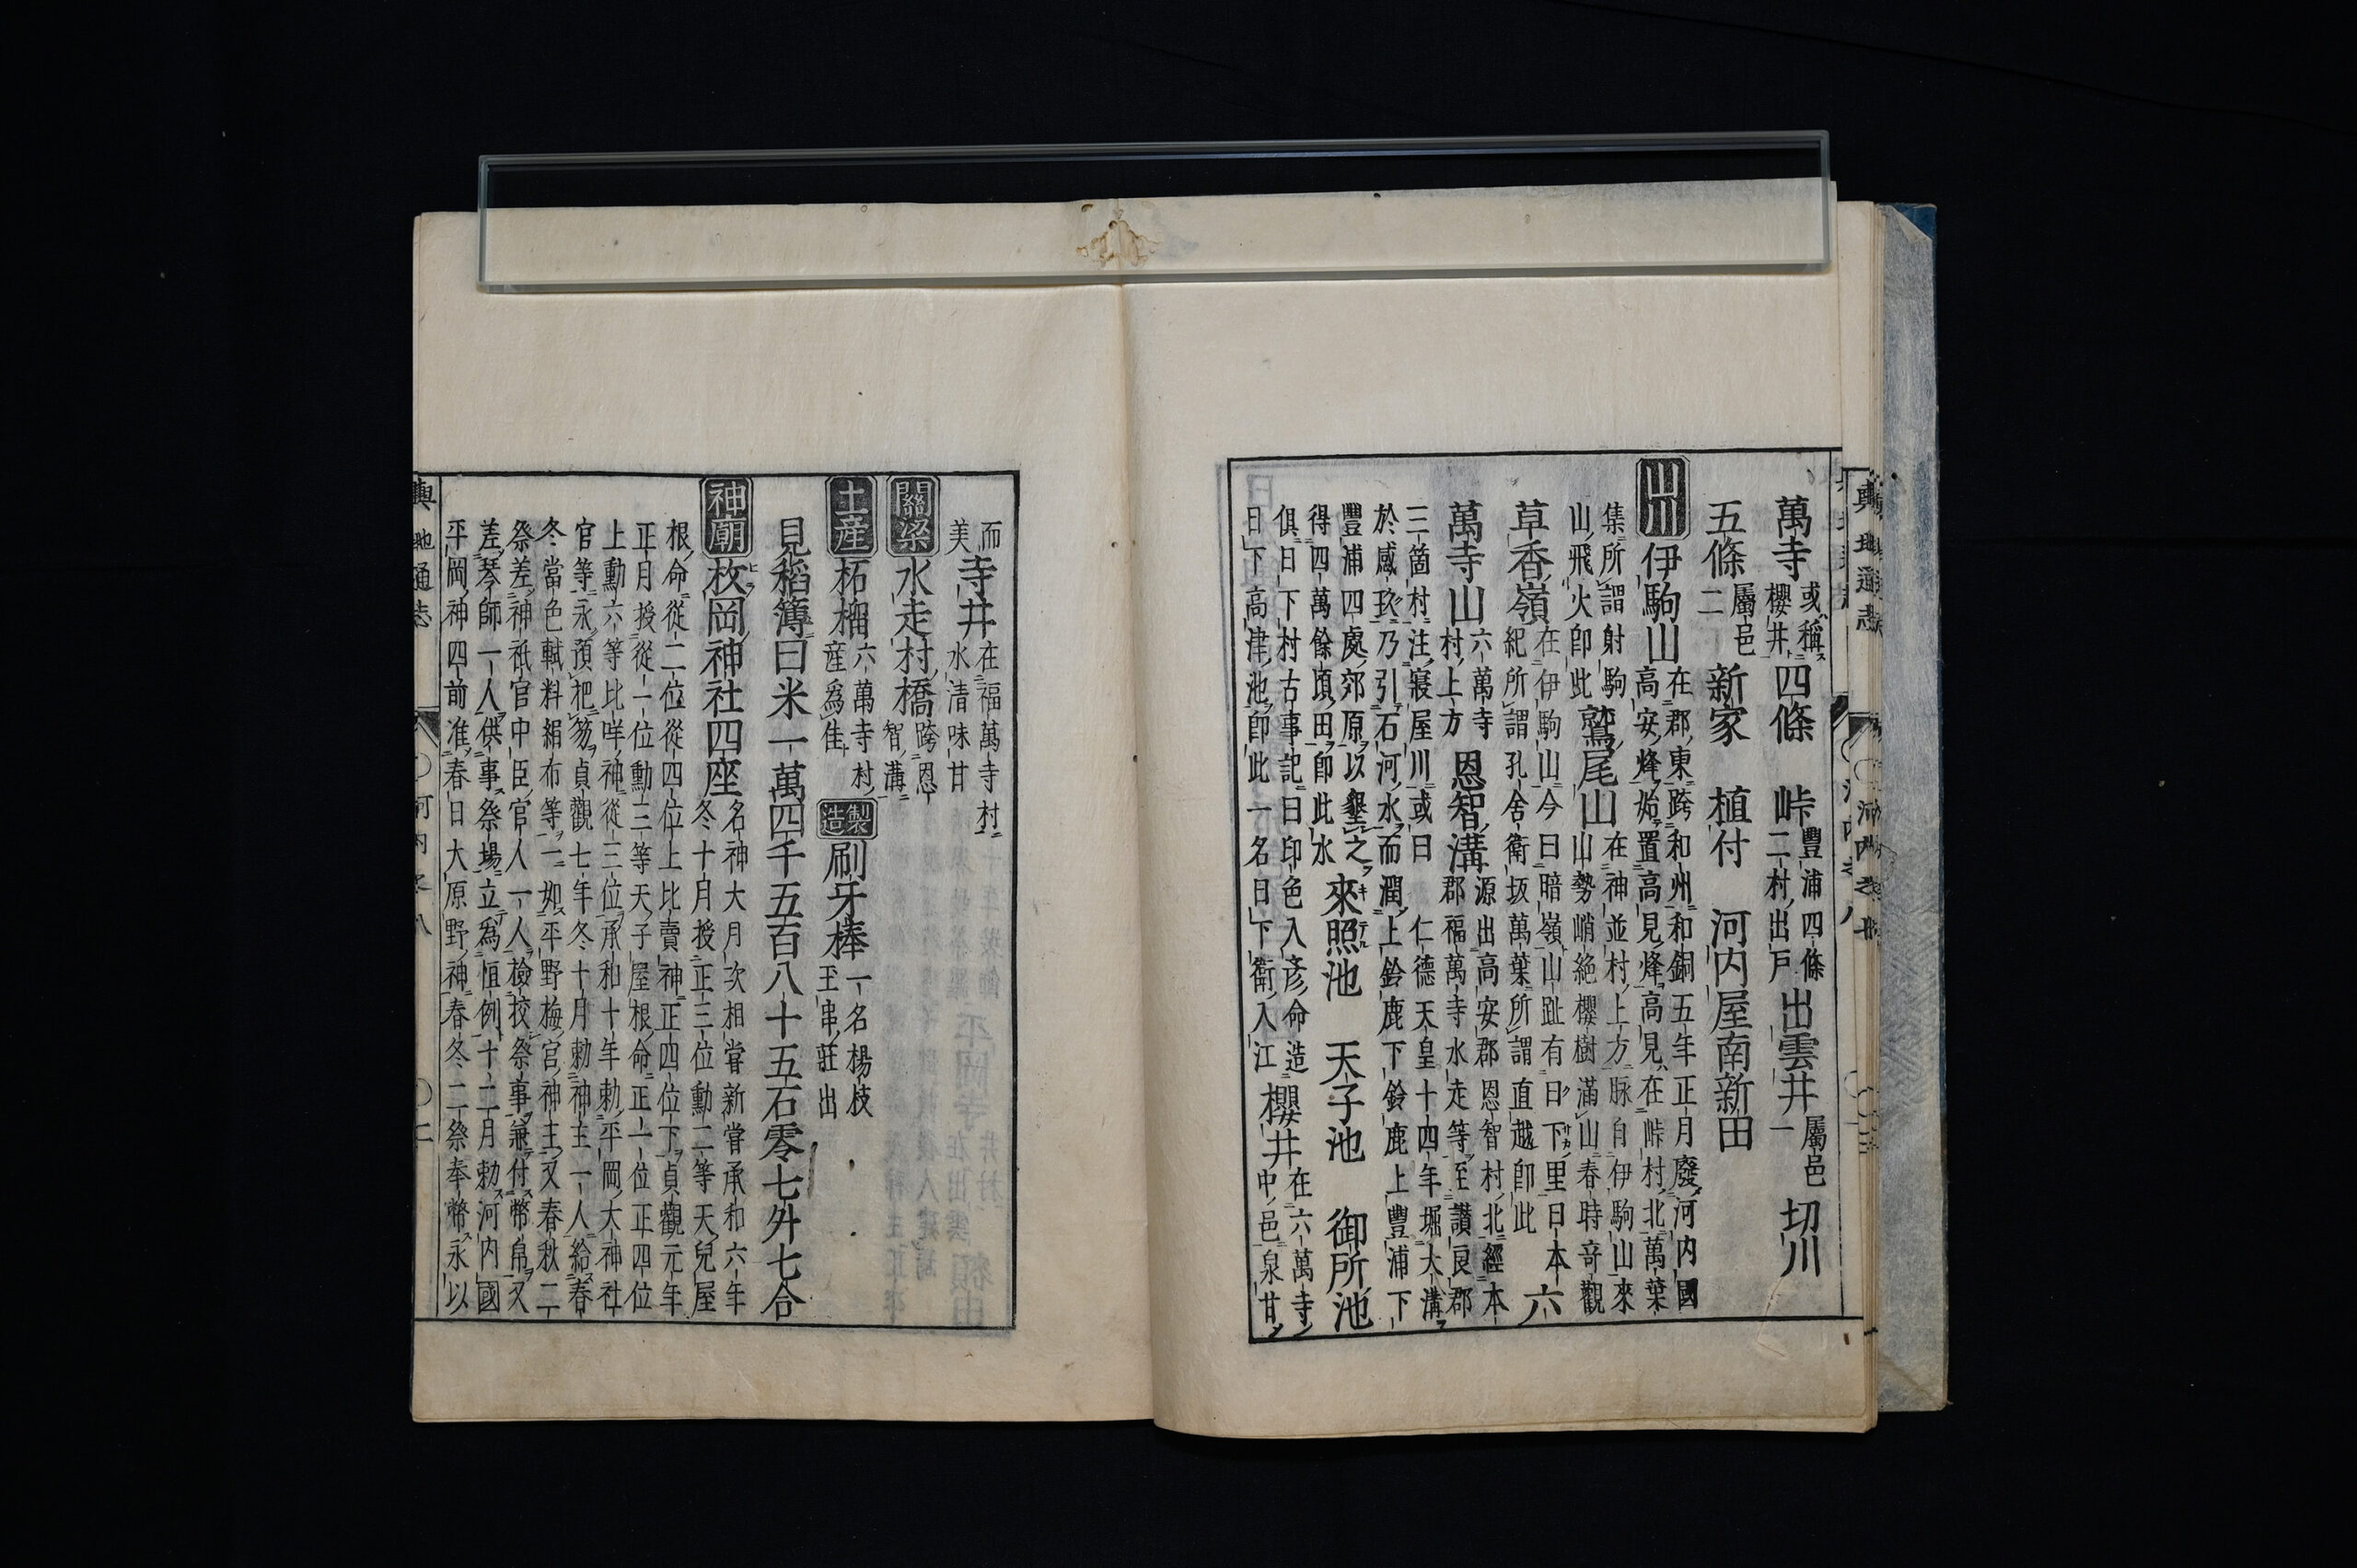 萬寺 或稱櫻井 四條 峠 豐浦四條二村出戸 出雲井 屬邑一 切川
五條 屬邑二 新家 植付 河内屋南新田
山川 伊駒山 在郡東跨和州和銅五年正月廢河内國
高安烽始置高見烽高見在峠村北萬葉
集所謂射駒
山飛火即此 鷲尾山 在神並村上方脉自伊駒山來
山勢峭絶櫻樹滿山春時竒觀
草香嶺 在伊駒山今曰暗嶺山趾有日下里日本
紀所謂孔舍衛坂萬葉所謂直越即此 六
萬寺山 六萬寺村上方 恩智溝 源出高安郡恩智村北經本
郡福萬寺水走等至讃良郡
三箇村注寢屋川或曰 仁德天皇十四年堀大溝
於感玖乃引石河水而潤上鈴鹿下鈴鹿上豐浦下
豐浦四處郊原以墾之
得四萬餘頃田即此水 來照池 天子池 御所池
俱日下村古事記曰印色入彦命造
日下高津池即此一名日下衛入江 櫻井 在六萬寺
中邑泉甘
而
美 寺井 在福萬寺村
水清味甘
關梁 水走村橋 跨恩
智溝
土産 柘榴 六萬寺村
産爲佳 製造 刷牙棒 一名楊枝
玉串莊出
見稻簿曰米一萬四千五百八十五石零七升七合
神廟 枚岡神社四座 名神大月次相嘗新嘗承和六年
冬十月授正三位勳二等天兒屋
根命從二位從四位上比賣神正四位下貞觀元年
正月授從一位勳三等天子屋根命正一位正四位
上勳六等比咩神從三位承和十年勅平岡大神社
官等永預把笏貞觀七年冬十月勅神主一人給春
冬當色軾料絹布等一如平野梅宮神主又春秋二
祭差神祇官中臣官人一人檢挍祭事兼付幣帛又
差琴師一人供事祭場立爲恒例十二月勅河内國
平岡神四前准春日大原野神春冬二祭奉幣永以